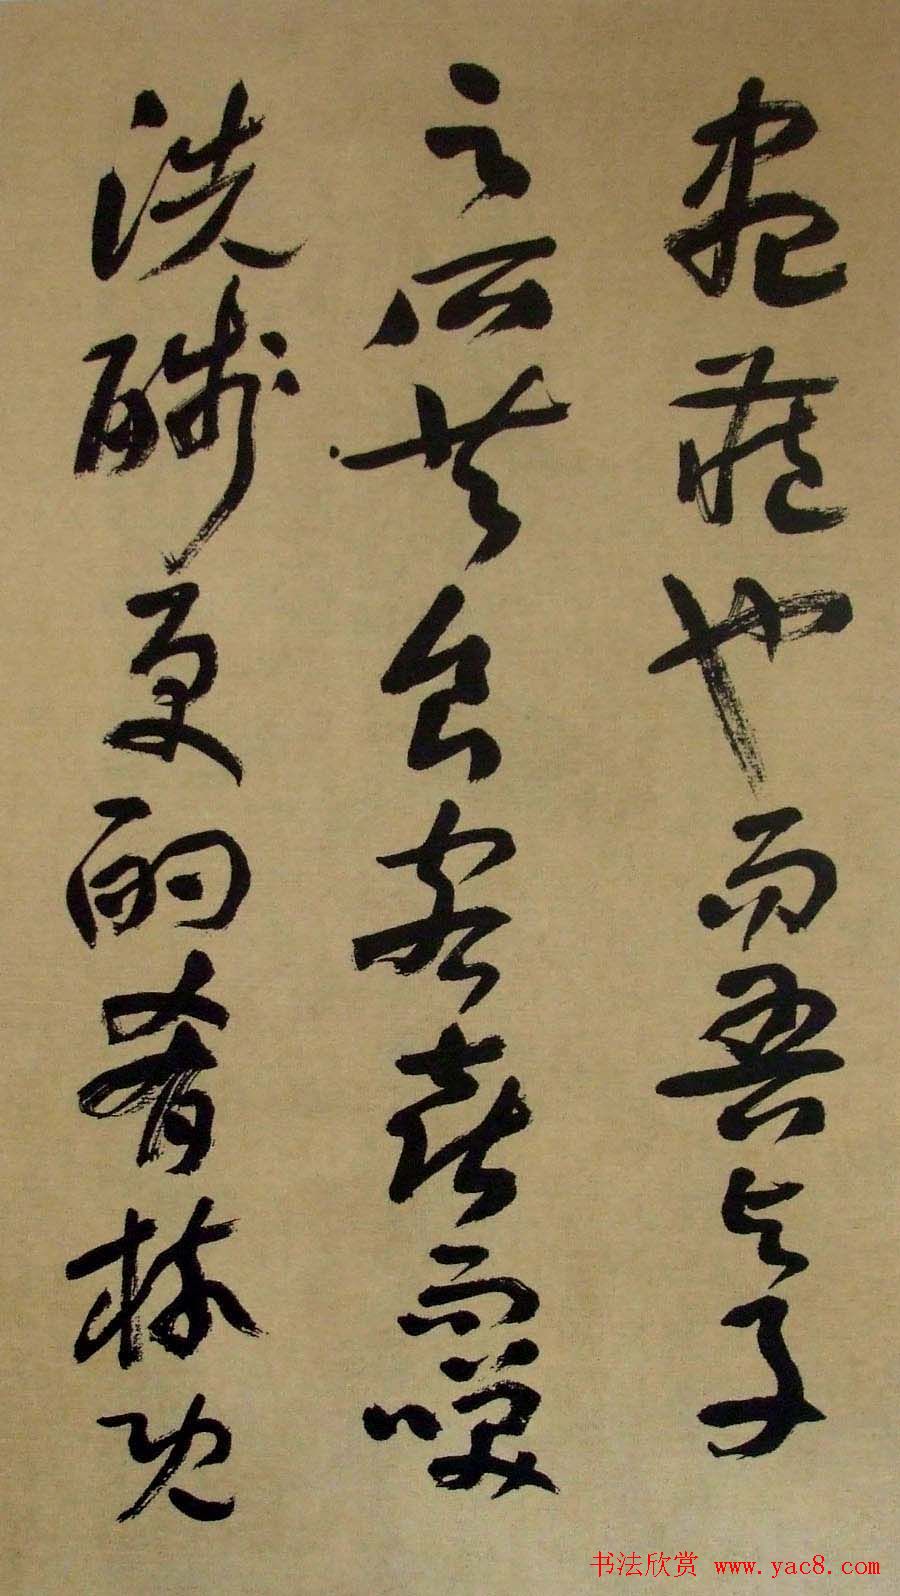 盡藏也而吾與子
之所共食客喜而咲
洗醆更酌肴核既
书法欣赏 www.yac8.com